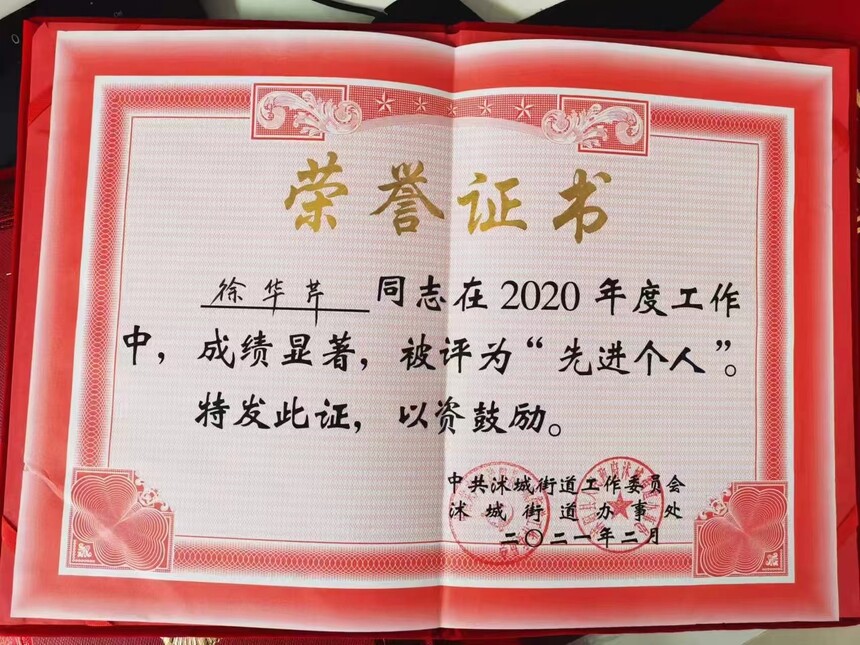 荣誉证书
徐华芹 同志在 2020 年度工作
中，成绩显著，被评为“先进个人”。
特发此证，以资鼓励。
中共沭城街道工作委员会
沭城街道办事处
二〇二一年二月